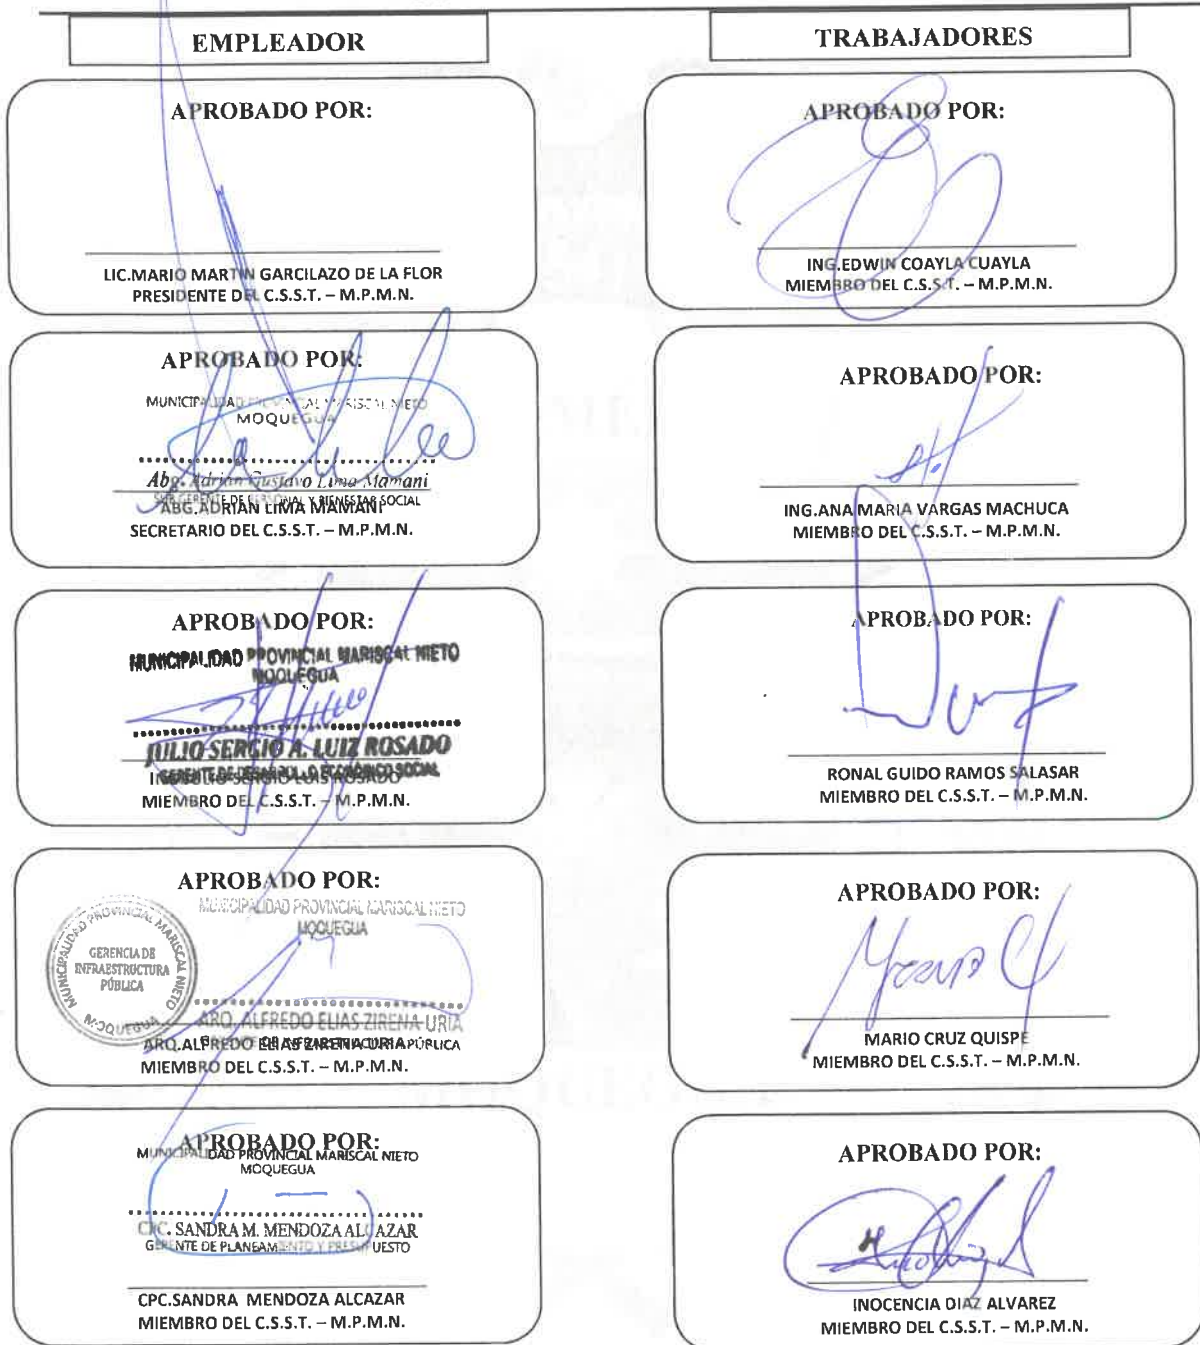 EMPLEADOR
APROBADO POR:
LIC.MARIO MARTIN GARCILAZO DE LA FLOR
PRESIDENTE DEL C.S.S.T. – M.P.M.N.
APROBADO POR:
MUNICIPALIDAD PROVINCIAL MARISCAL NIETO
MOQUEGUA
Abg. Adrian Gustavo Lima Mamani
SUB GERENTE DE PERSONAL Y BIENESTAR SOCIAL
ABG.ADRIAN LIMA MAMANI
SECRETARIO DEL C.S.S.T. – M.P.M.N.
APROBADO POR:
MUNICIPALIDAD PROVINCIAL MARISCAL NIETO
MOQUEGUA
JULIO SERGIO A. LUIZ ROSADO
GERENTE DE DESARROLLO ECONOMICO SOCIAL
JULIO SERGIO LUIS ROSADO
MIEMBRO DEL C.S.S.T. – M.P.M.N.
APROBADO POR:
MUNICIPALIDAD PROVINCIAL MARISCAL NIETO
MOQUEGUA
MUNICIPALIDAD PROVINCIAL MARISCAL NIETO
GERENCIA DE
INFRAESTRUCTURA
PÚBLICA
MOQUEGUA
ARQ. ALFREDO ELIAS ZIRENA URIA
GERENTE DE INFRAESTRUCTURA PÚBLICA
ARQ.ALFREDO ELIAS ZIRENA URIA
MIEMBRO DEL C.S.S.T. – M.P.M.N.
APROBADO POR:
MUNICIPALIDAD PROVINCIAL MARISCAL NIETO
MOQUEGUA
CPC. SANDRA M. MENDOZA ALCAZAR
GERENTE DE PLANEAMIENTO Y PRESUPUESTO
CPC.SANDRA MENDOZA ALCAZAR
MIEMBRO DEL C.S.S.T. – M.P.M.N.
TRABAJADORES
APROBADO POR:
ING.EDWIN COAYLA CUAYLA
MIEMBRO DEL C.S.S.T. – M.P.M.N.
APROBADO POR:
ING.ANA MARIA VARGAS MACHUCA
MIEMBRO DEL C.S.S.T. – M.P.M.N.
APROBADO POR:
RONAL GUIDO RAMOS SALASAR
MIEMBRO DEL C.S.S.T. – M.P.M.N.
APROBADO POR:
MARIO CRUZ QUISPE
MIEMBRO DEL C.S.S.T. – M.P.M.N.
APROBADO POR:
INOCENCIA DIAZ ALVAREZ
MIEMBRO DEL C.S.S.T. – M.P.M.N.